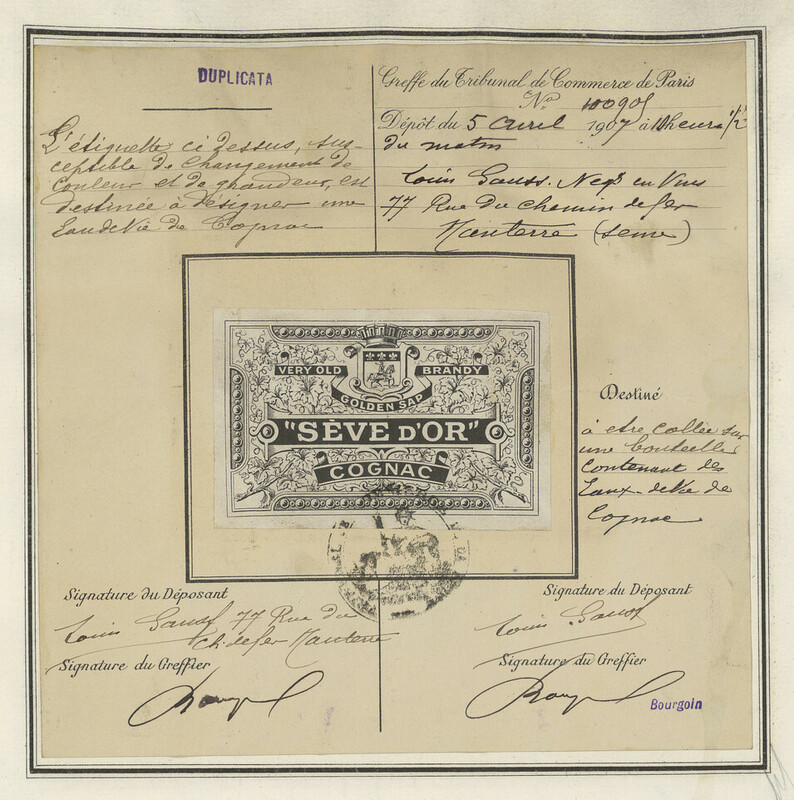 DUPLICATA
L'étiquette ci dessus, sus-
ceptible de changement de
couleur et de grandeur, est
destinée à désigner une
Eau de Vie de Cognac
Greffe du Tribunal de Commerce de Paris
No. 100901
Dépôt du 5 avril 1907 à 10 heures 1/2
du matin
Louis Gauss. Negt en Vins
77 Rue du Chemin de fer
Nanterre (Seine)
VERY OLD BRANDY
GOLDEN SAP
"SÈVE D'OR"
COGNAC
Destiné
à etre collée sur
une bouteille
contenant des
Eaux-de Vie de
Cognac
Signature du Déposant
Louis Gauss 77 Rue du
Ch. de fer Nanterre
Signature du Greffier
Signature du Déposant
Louis Gauss
Signature du Greffier
Bourgoin